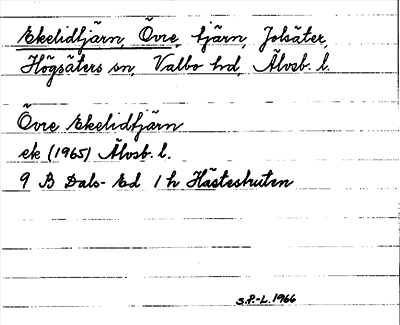 Ekelidtjärn, Övre, tjärn, Jolsäter,
Högsäters sn, Valbo hd, Älvsb. l.
Övre Ekelidtjärn
ek (1965) Älvsb. l.
9 B Dals-Ed 1 h Hästeskuiten
S.P.-L. 1966